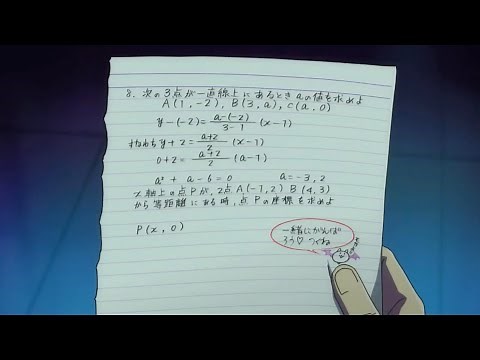 8. 次の3点が一直線上にあるとき aの値を求めよ
A(1,-2), B(3,a), C(a,0)
y-(-2)=\frac{a-(-2)}{3-1}(x-1)
すなわち y+2=\frac{a+2}{2}(x-1)
0+2=\frac{a+2}{2}(a-1)
a²+a-6=0 a=-3,2
x軸上の点Pが、2点A(-1,2) B(4,3)
から等距離にある時、点Pの座標を求めよ
P(x,0)
一緒にがんば
ろう♡ つくね